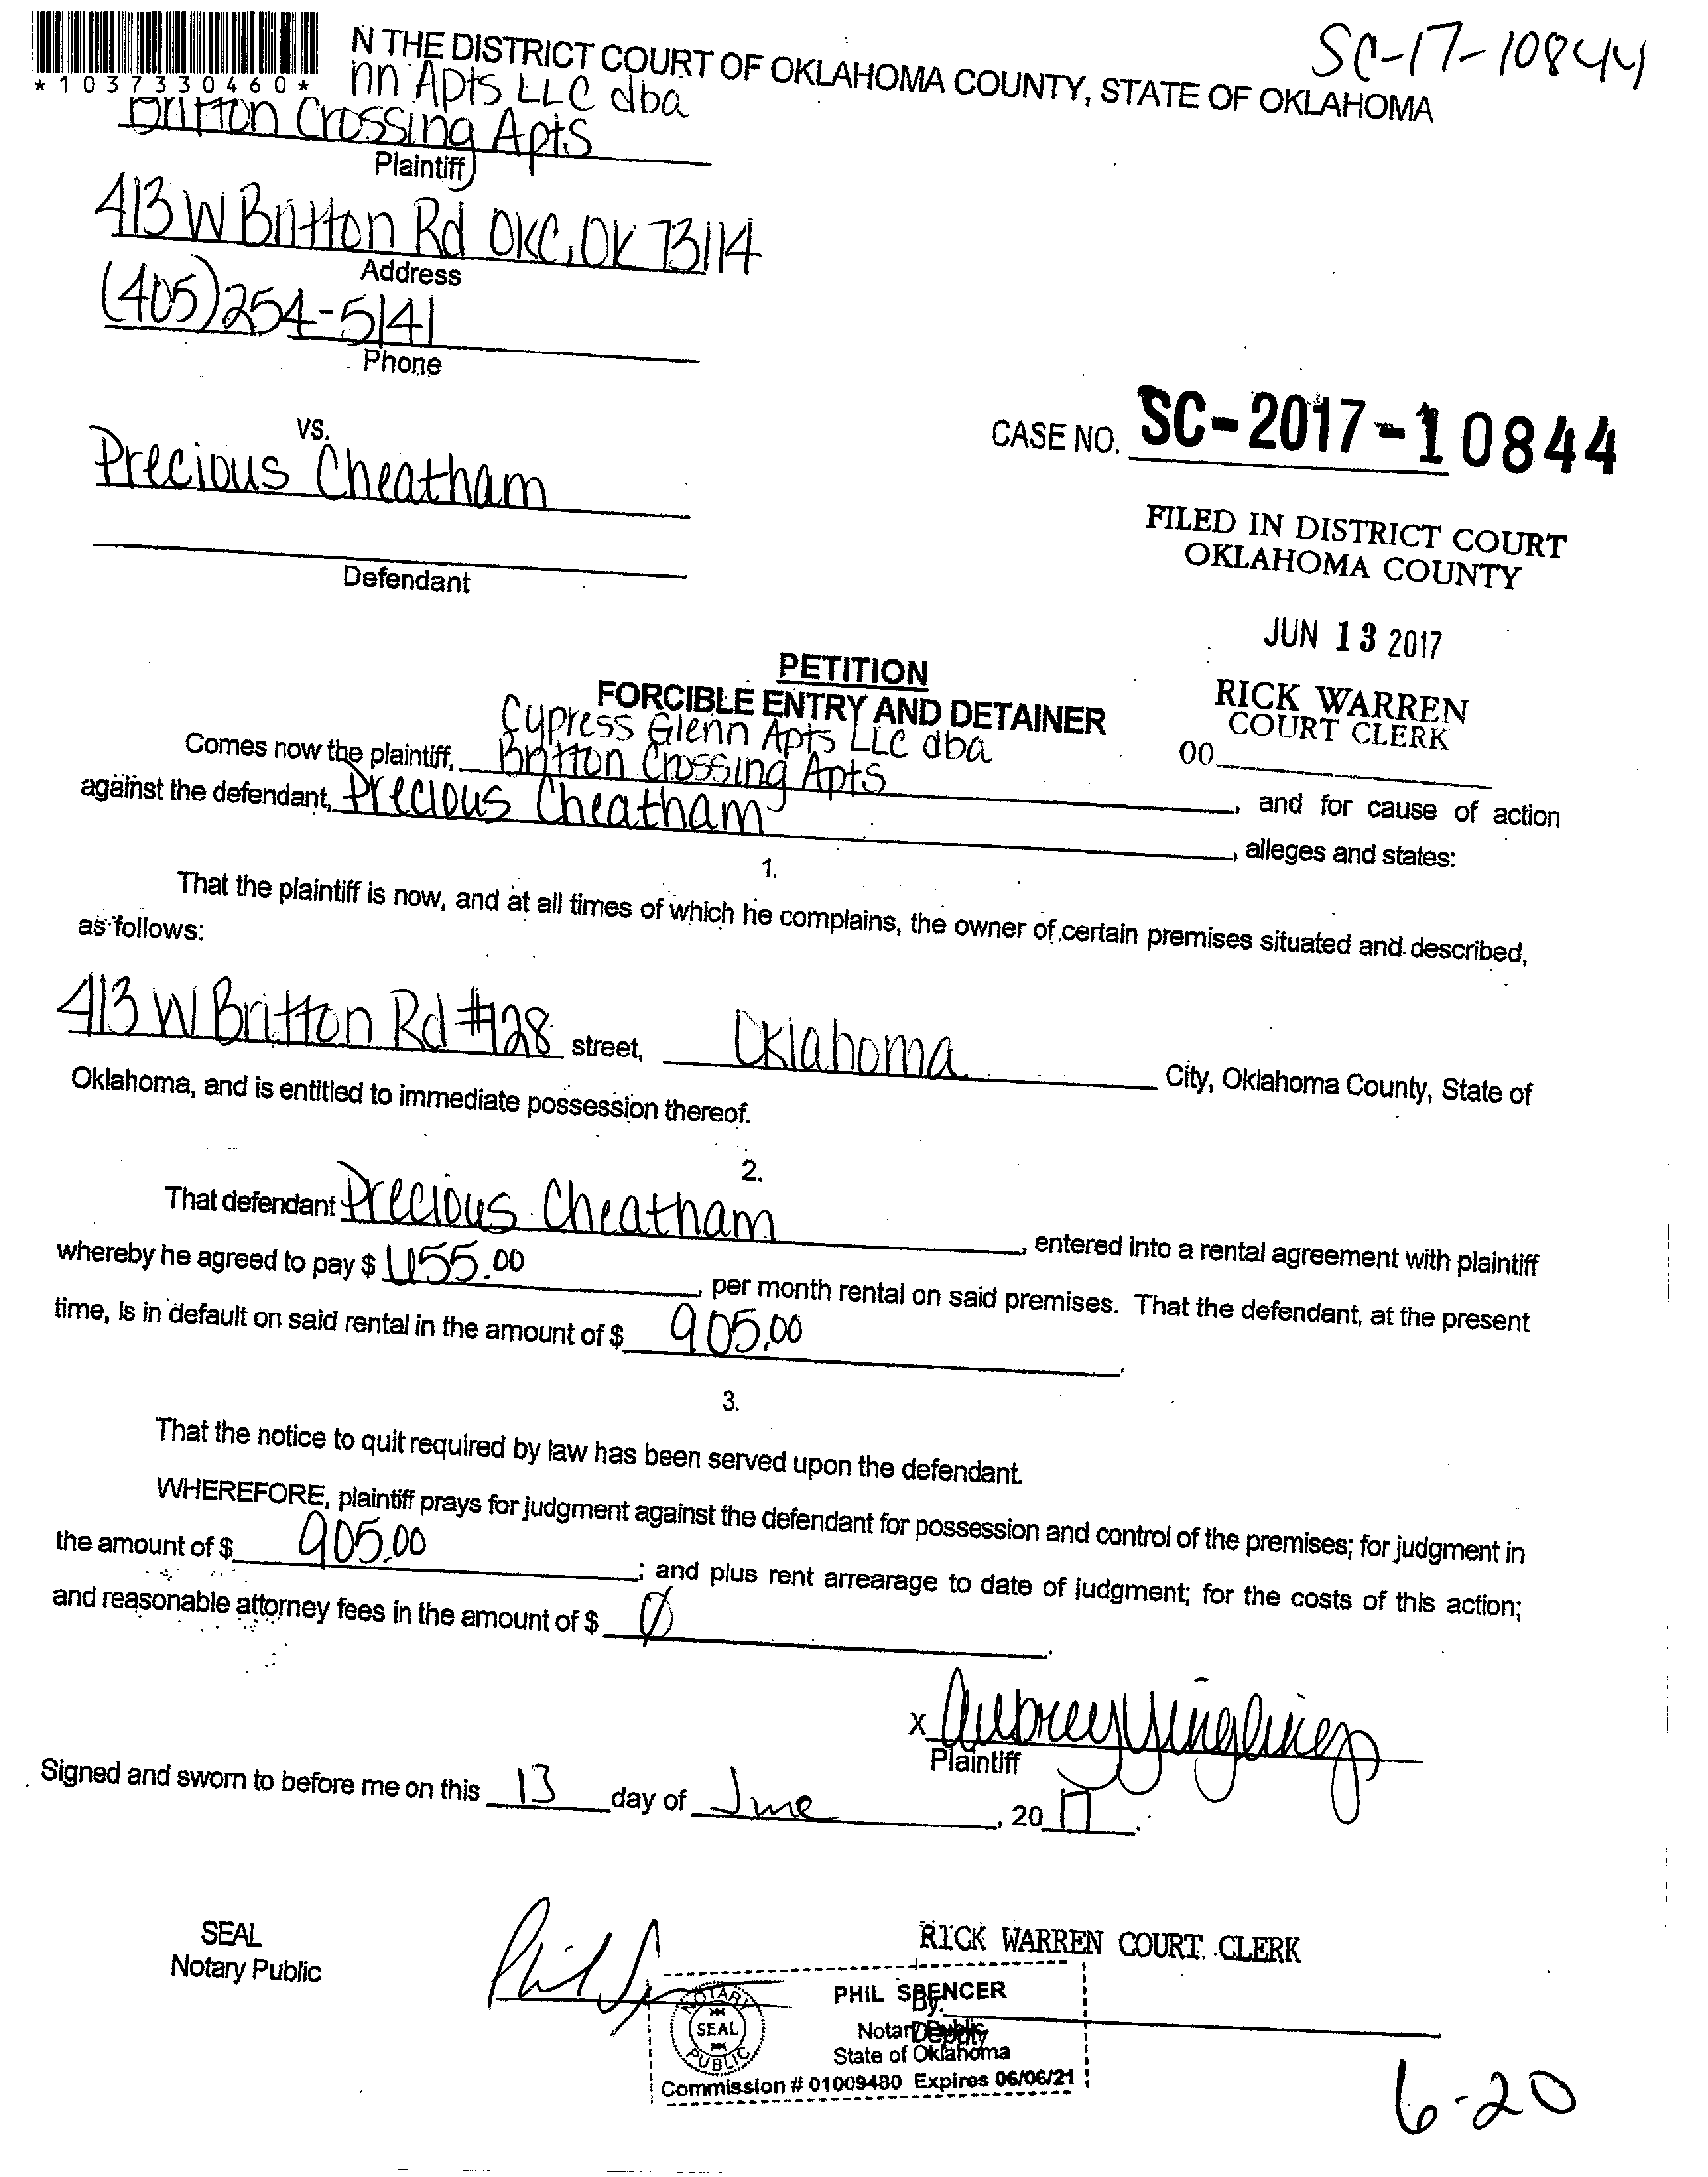 SC-17-10844
N THE DISTRICT COURT OF OKLAHOMA COUNTY, STATE OF OKLAHOMA
*1037330460*
nn Apts LLC dba
Britton Crossing Apts
Plaintiff
413 W Britton Rd OKC, OK 73114
Address
(405)254-5141
Phone
vs.
Precious Cheatham
Defendant
CASE NO. SC-2017-10844
FILED IN DISTRICT COURT
OKLAHOMA COUNTY
JUN 13 2017
RICK WARREN
COURT CLERK
00
PETITION
FORCIBLE ENTRY AND DETAINER
Cypress Glenn Apts LLC dba
Comes now the plaintiff, Britton Crossing Apts
against the defendant, Precious Cheatham, and for cause of action
, alleges and states:
1.
That the plaintiff is now, and at all times of which he complains, the owner of certain premises situated and described,
as follows:
413 W Britton Rd #128 street, Oklahoma City, Oklahoma County, State of
Oklahoma, and is entitled to immediate possession thereof.
2.
That defendant Precious Cheatham, entered into a rental agreement with plaintiff
whereby he agreed to pay $ 655.00, per month rental on said premises. That the defendant, at the present
time, is in default on said rental in the amount of $ 905.00.
3.
That the notice to quit required by law has been served upon the defendant.
WHEREFORE, plaintiff prays for judgment against the defendant for possession and control of the premises; for judgment in
the amount of $ 905.00; and plus rent arrearage to date of judgment; for the costs of this action;
and reasonable attorney fees in the amount of $ Ø.
x Aubrey Yinglings
Plaintiff
Signed and sworn to before me on this 13 day of June, 2017.
SEAL
Notary Public
RICK WARREN COURT CLERK
NOTARY
SEAL
PUBLIC
PHIL SPENCER
By.
Notary Public
Deputy
State of Oklahoma
Commission # 01009480 Expires 06/06/21
6-20